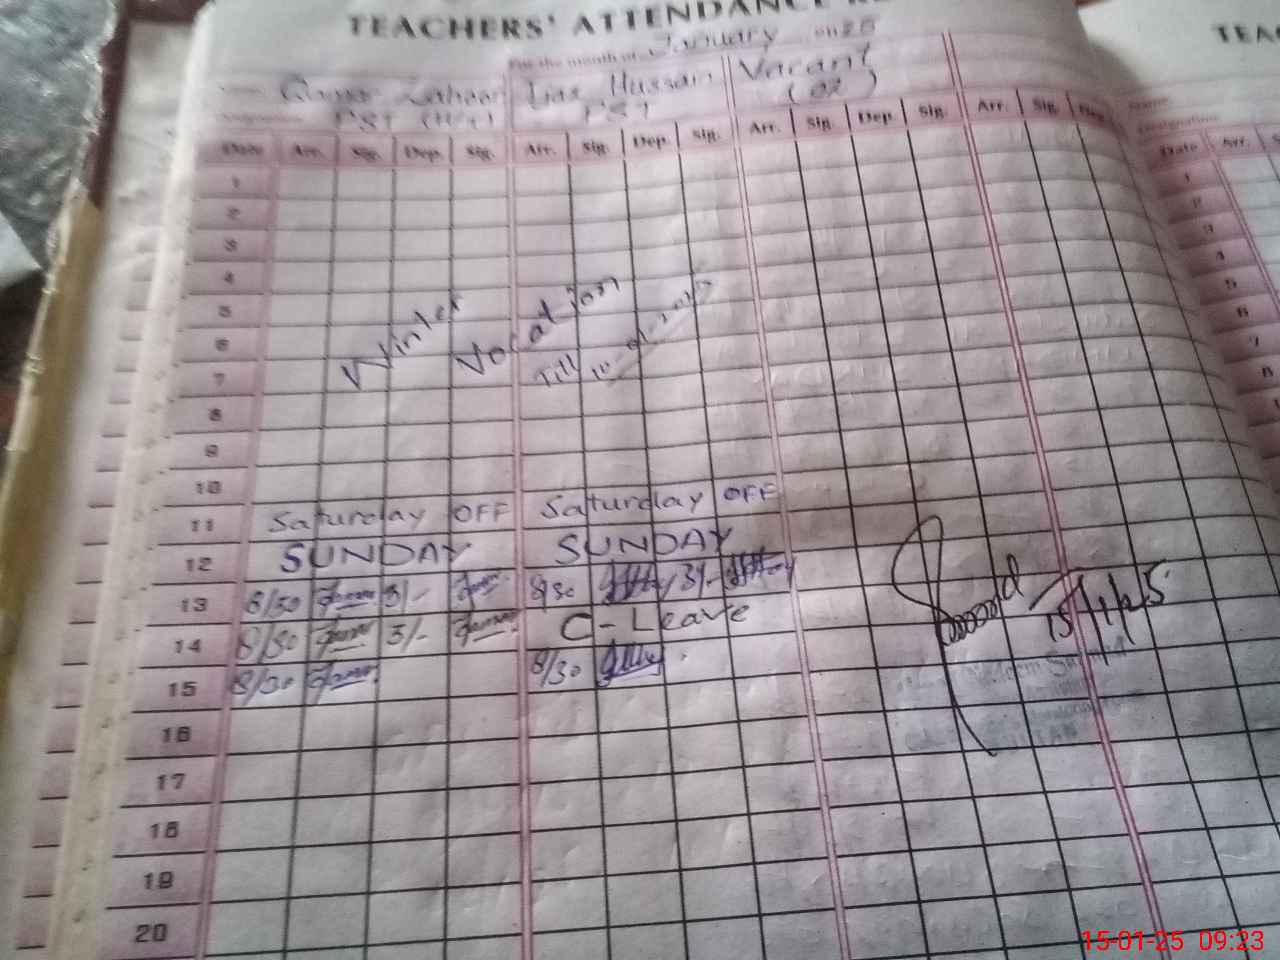 TEACHERS' ATTENDANCE
TEA
For the month of January 2025
Qamar Zaheer Ijaz Hussain Vacant
PST (H/T) PST (02)
Name
Designation
Date Arr. Sig. Dep. Sig. Arr. Sig. Dep. Sig. Arr. Sig. Dep. Sig. Arr. Sig. Dep.
Date Arr. S
1
2
3
4
5
6
7
8
9
10
Winter Vocation
Till 10-01-2025
11 Saturday OFF Saturday OFF
12 SUNDAY SUNDAY
13 8/30 3/- 8/30 3/-
14 8/30 3/- C-Leave
15 8/30 8/30
15/1/25
16
17
18
19
20
1
2
3
4
5
6
7
8
15-01-25 09:23